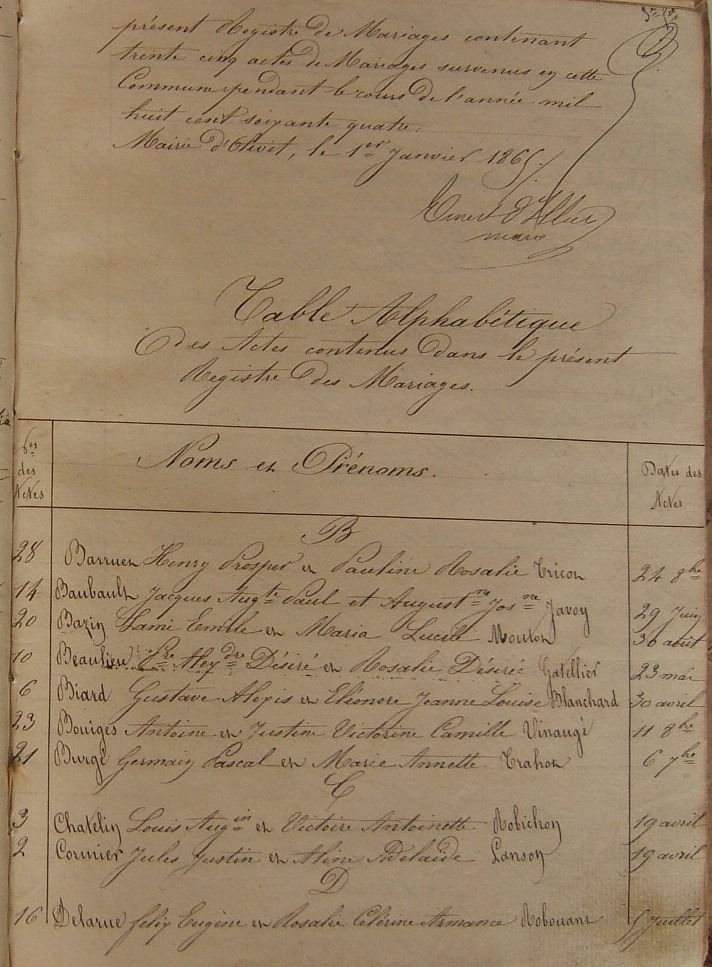 présent Registre de Mariages contenant
trente cinq actes de Mariages survenus en cette
Commune pendant le cours de l'année mil
huit cent soixante quatre.
Mairie d'Olivet, le 1er Janvier 1865.
maire
Table Alphabétique
Des Actes contenus dans le présent
Registre des Mariages.
Nos des Actes
Noms et Prénoms.
Dates des Actes
B
28 Barruet Henry Prosper et Pauline Rosalie Tricot 24 8bre
14 Baubault Jacques Augte Paul et Augustne Josne Javoy 29 Juin
20 Bazin Lami Emile et Maria Lucile Mouton 30 août
10 Beaulieu Alexdre Désiré et Rosalie Désiré Gatellier 23 mai
6 Biard Gustave Alexis et Eléonore Jeanne Louise Blanchard 30 avril
23 Bouiges Antoine et Justine Victorine Camille Vinaugé 11 8bre
21 Burgé Germain Pascal et Marie Annette Trahot 6 7bre
C
3 Chatelin Louis Augin et Victoire Antoinette Robichon 19 avril
2 Cormier Jules Justin et Aline Adelaïde Lanson 19 avril
D
16 Delarue félix Eugène et Rosalie Célérine Armance Robouant 5 juillet